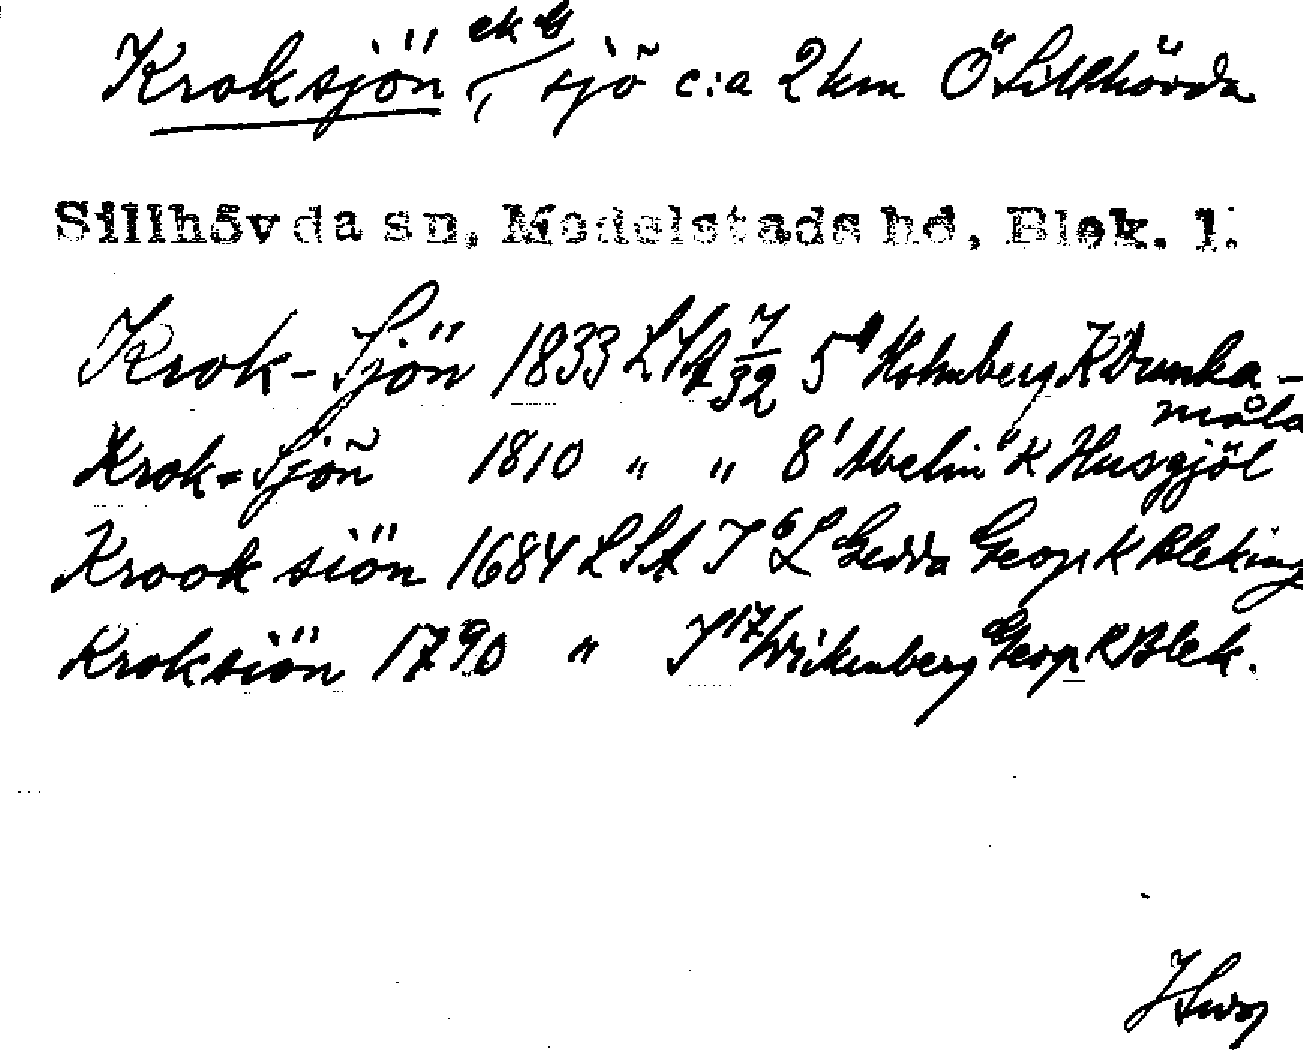 Kroksjön, ek G sjö c:a 2 km Ö Sillhövda
Sillhövda sn, Medelstads hd, Blek. l.
Krok-Sjön 1833 LSA 7/32 5 Holmberg K Dunka-
måla
Krok-Sjön 1810 " " 8 Abelin K Husgjöl
Krook siön 1684 LSA I 6 L Gedda Geogr K Bleking
Kroksiön 1790 " I 17 Wikenberg Geogr K Blek.